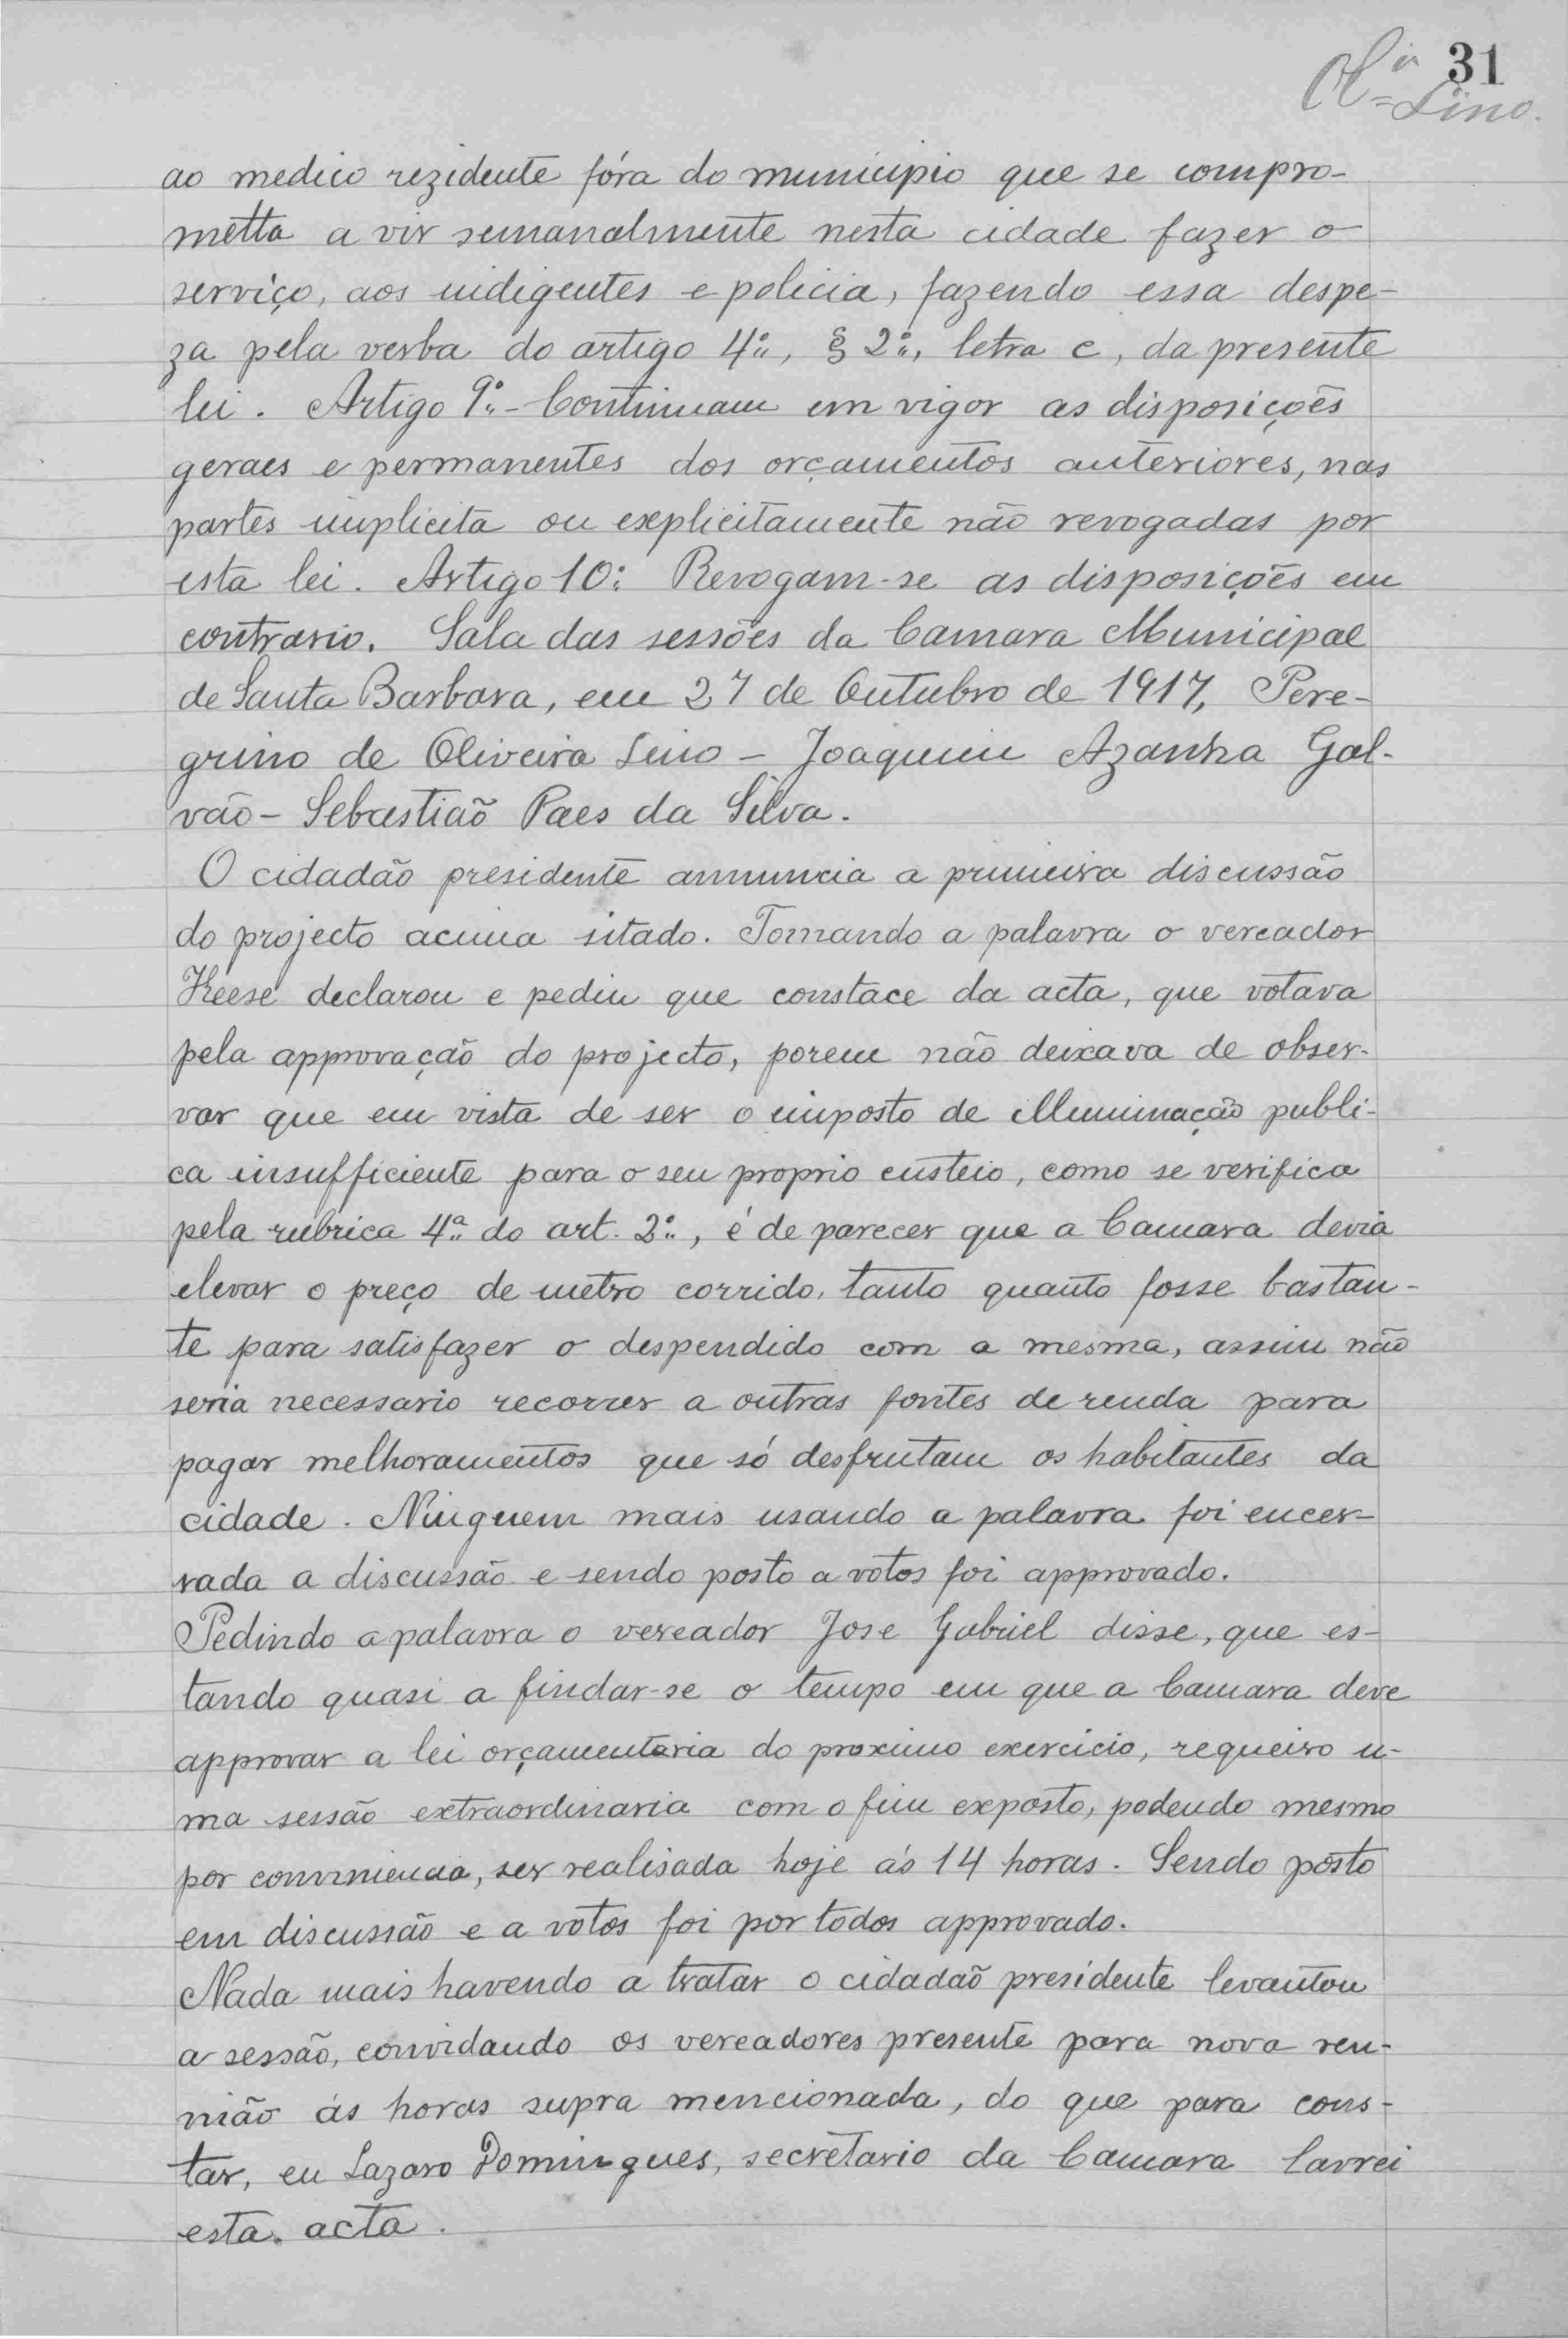 31
Olra Lino.
ao medico rezidente fóra do municipio que se compro-
metta a vir semanalmente nesta cidade fazer o
serviço, aos indigentes e policia, fazendo essa despe-
za pela verba do artigo 4º, § 2º, letra c, da presente
lei. Artigo 9º - Continuam em vigor as disposições
geraes e permanentes dos orçamentos anteriores, nas
partes implicita ou explicitamente não revogadas por
esta lei. Artigo 10: Revogam-se as disposições em
contrario. Sala das sessões da Camara Municipal
de Santa Barbara, em 27 de Outubro de 1917, Pere-
grino de Oliveira Lino - Joaquim Azanha Gal-
vão - Sebastião Paes da Silva.
O cidadão presidente annuncia a primeira discussão
do projecto acima sitado. Tomando a palavra o vereador
Keese declarou e pediu que constace da acta, que votava
pela approvação do projecto, porem não deixava de obser-
var que em vista de ser o imposto de illuminação publi-
ca insufficiente para o seu proprio custeio, como se verifica
pela rubrica 4ª do art. 2º, é de parecer que a Camara devia
elevar o preço de metro corrido, tanto quanto fosse bastan-
te para satisfazer o despendido com a mesma, assim não
seria necessario recorrer a outras fontes de renda para
pagar melhoramentos que só desfrutam os habitantes da
cidade. Ninguem mais usando a palavra foi encer-
rada a discussão e sendo posto a votos foi approvado.
Pedindo a palavra o vereador Jose Gabriel disse, que es-
tando quasi a findar-se o tempo em que a Camara deve
approvar a lei orçamentaria do proximo exercicio, requeiro u-
ma sessão extraordinaria com o fim exposto, podendo mesmo
por conviniencia, ser realisada hoje ás 14 horas. Sendo posto
em discussão e a votos foi por todos approvado.
Nada mais havendo a tratar o cidadão presidente levantou
a sessão, convidando os vereadores presente para nova reu-
nião ás horas supra mencionada, do que para cons-
tar, eu Lazaro Domingues, secretario da Camara lavrei
esta acta.